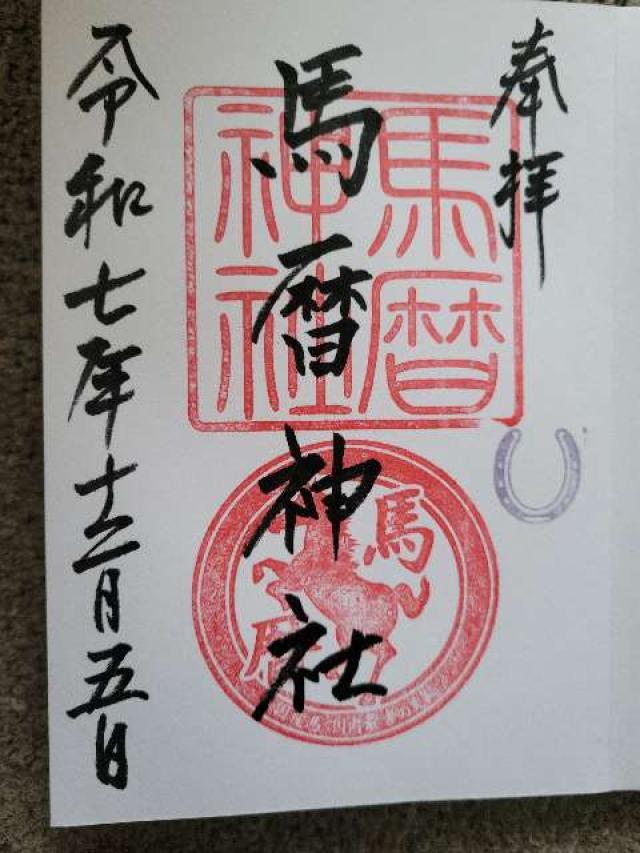 奉拝
馬暦
神社
馬暦神社
馬
暦
令和七年十二月五日